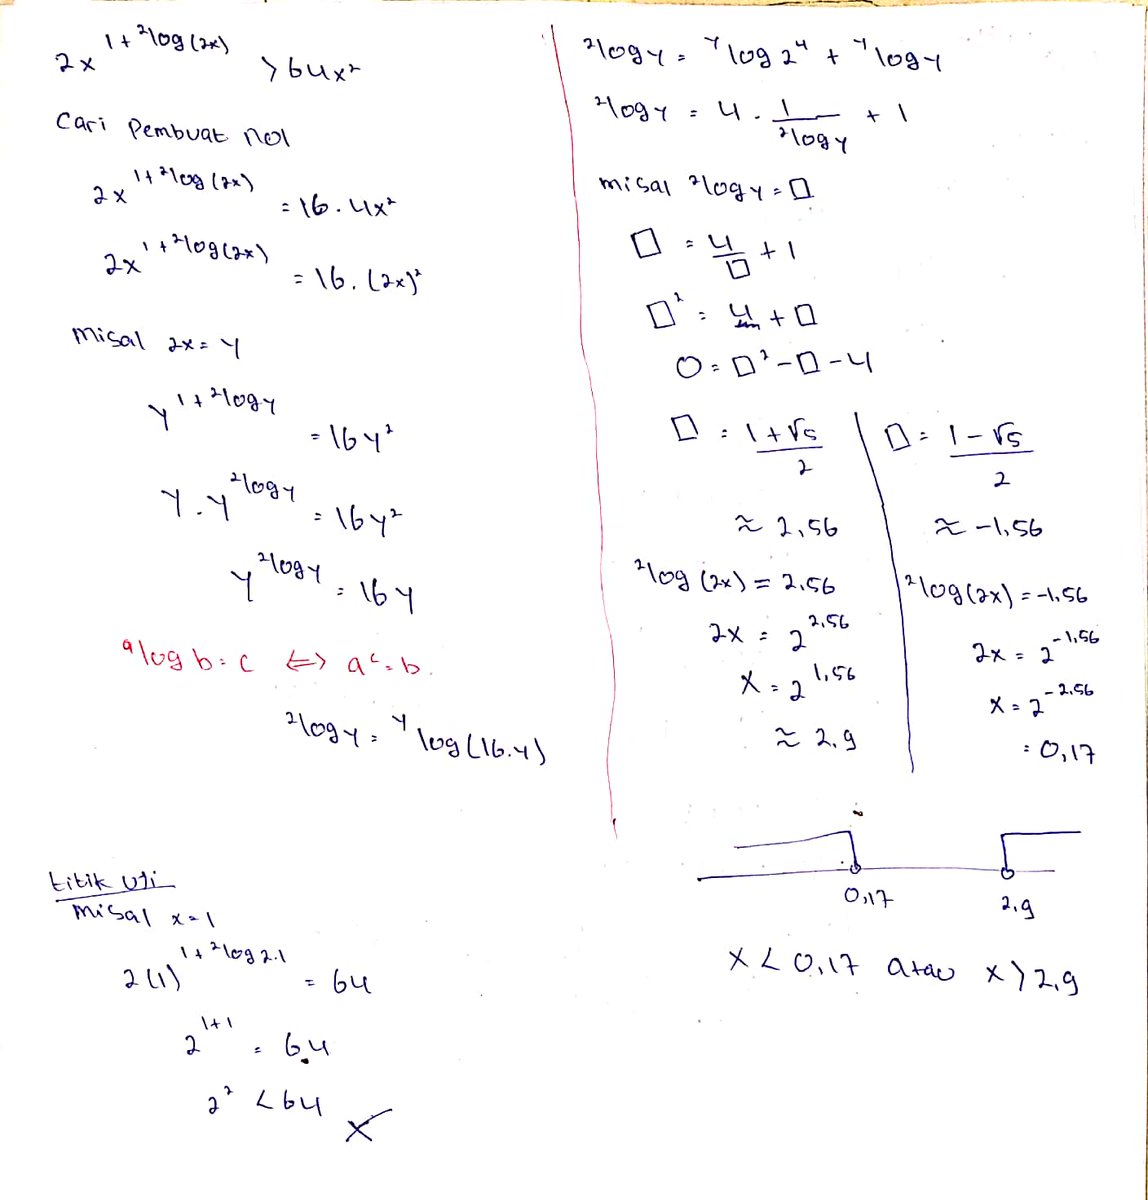 2x^(1+²log(2x)) > 64x²
Cari Pembuat nol
2x^(1+²log(2x)) = 16.4x²
2x^(1+²log(2x)) = 16.(2x)²
Misal 2x = y
y^(1+²log y) = 16y²
y.y^(²log y) = 16y²
y^(²log y) = 16y
ᵃlog b = c ⇔ aᶜ = b.
²log y = ʸlog(16.y)
titik uji
Misal x = 1
2(1)^(1+²log 2.1) = 64
2^(1+1) = 64
2² < 64 ×
²log y = ʸlog 2⁴ + ʸlog y
²log y = 4 . 1/(²log y) + 1
misal ²log y = □
□ = 4/□ + 1
□² = 4 + □
0 = □² - □ - 4
□ = (1+√5)/2
≈ 2,56
²log(2x) = 2,56
2x = 2^(2,56)
x = 2^(1,56)
≈ 2,9
□ = (1-√5)/2
≈ -1,56
²log(2x) = -1,56
2x = 2^(-1,56)
x = 2^(-2,56)
= 0,17
0,17 2,9
x < 0,17 atau x > 2,9